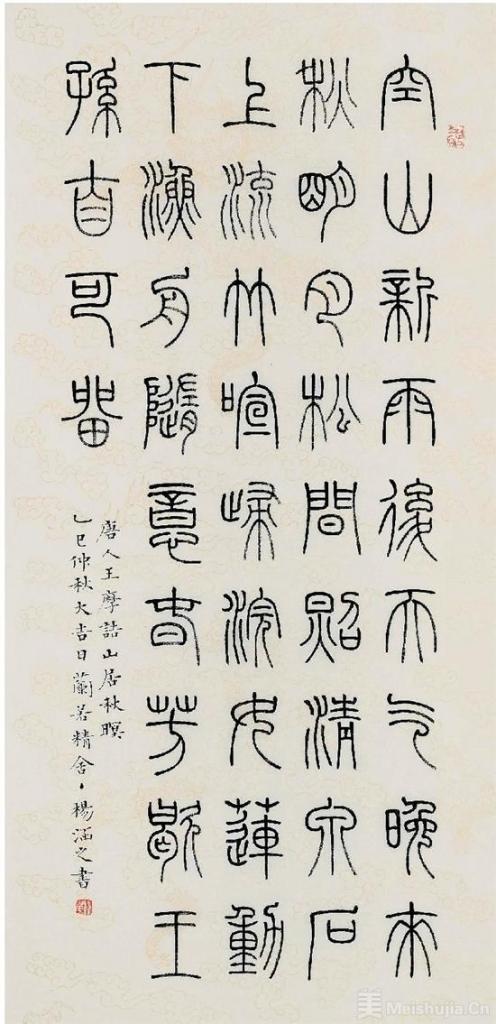 空山新雨後天气晚來
秋明月松間照清泉石
上流竹喧歸浣女蓮動
下漁舟隨意春芳歇王
孫自可留
唐人王摩詰山居秋暝
乙巳仲秋大吉日蘭若精舍、楊涵之書
美 Meishujia.Cn